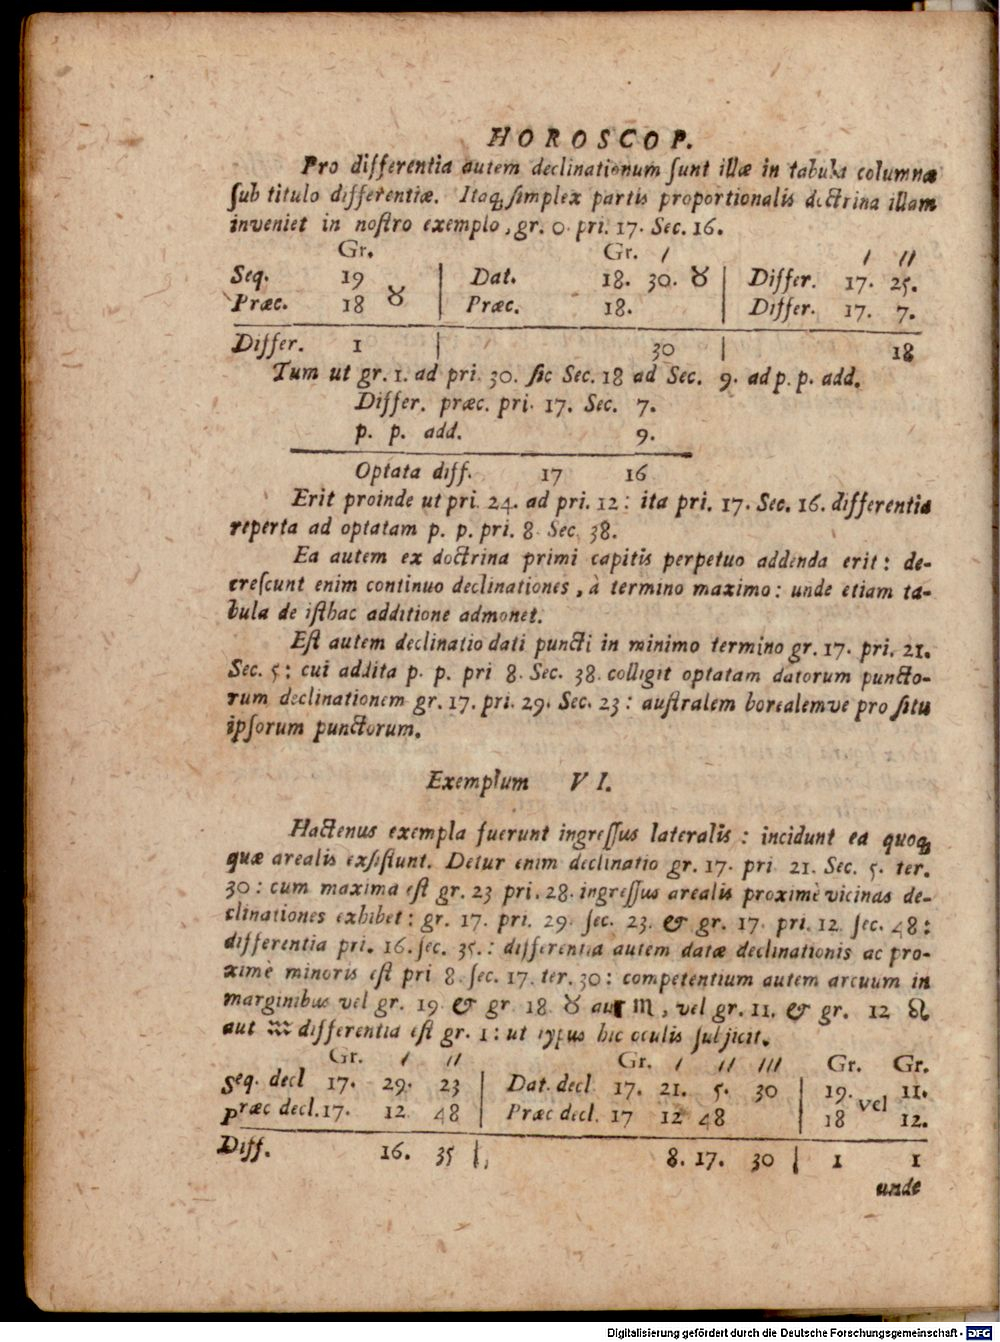 HOROSCOP.
Pro differentia autem declinationum ſunt illæ in tabula columnæ
ſub titulo differentiæ. Itaq; ſimplex partis proportionalis doctrina illam
inveniet in noſtro exemplo, gr. 0. pri. 17. Sec. 16.
Gr. Gr. / / //
Seq. 19 ♉ | Dat. 18. 30. ♉ | Differ. 17. 25.
Præc. 18 | Præc. 18. | Differ. 17. 7.
Differ. 1 | 30 | 18
Tum ut gr. 1. ad pri. 30. ſic Sec. 18 ad Sec. 9. ad p. p. add.
Differ. præc. pri. 17. Sec. 7.
p. p. add. 9.
Optata diff. 17 16
Erit proinde ut pri. 24. ad pri. 12: ita pri. 17. Sec. 16. differentia
reperta ad optatam p. p. pri. 8. Sec. 38.
Ea autem ex doctrina primi capitis perpetuo addenda erit: de-
creſcunt enim continuo declinationes, à termino maximo: unde etiam ta-
bula de iſthac additione admonet.
Eſt autem declinatio dati puncti in minimo termino gr. 17. pri. 21.
Sec. 5: cui addita p. p. pri 8. Sec. 38. colligit optatam datorum puncto-
rum declinationem gr. 17. pri. 29. Sec. 23: auſtralem borealemve pro ſitu
ipſorum punctorum.
Exemplum VI.
Hactenus exempla fuerunt ingreſſus lateralis: incidunt ea quoq;
quæ arealis exſiſtunt. Detur enim declinatio gr. 17. pri 21. Sec. 5. ter.
30: cum maxima eſt gr. 23 pri. 28. ingreſſus arealis proximè vicinas de-
clinationes exhibet: gr. 17. pri. 29. ſec. 23. & gr. 17. pri. 12. ſec. 48:
differentia pri. 16. ſec. 35.: differentia autem datæ declinationis ac pro-
ximè minoris eſt pri 8. ſec. 17. ter. 30: competentium autem arcuum in
marginibus vel gr. 19. & gr. 18. ♉ aut ♏, vel gr. 11. & gr. 12 ♌
aut ♒ differentia eſt gr. 1: ut typus hic oculis ſubjicit.
Gr. / // Gr. / // /// Gr. Gr.
Seq. decl 17. 29. 23 | Dat. decl 17. 21. 5. 30 | 19. vel 11.
Præc decl. 17. 12 48 | Præc decl. 17 12 48 | 18 12.
Diff. 16. 35 | 8. 17. 30 | 1 1
unde
Digitalisierung gefördert durch die Deutsche Forschungsgemeinschaft - DFG